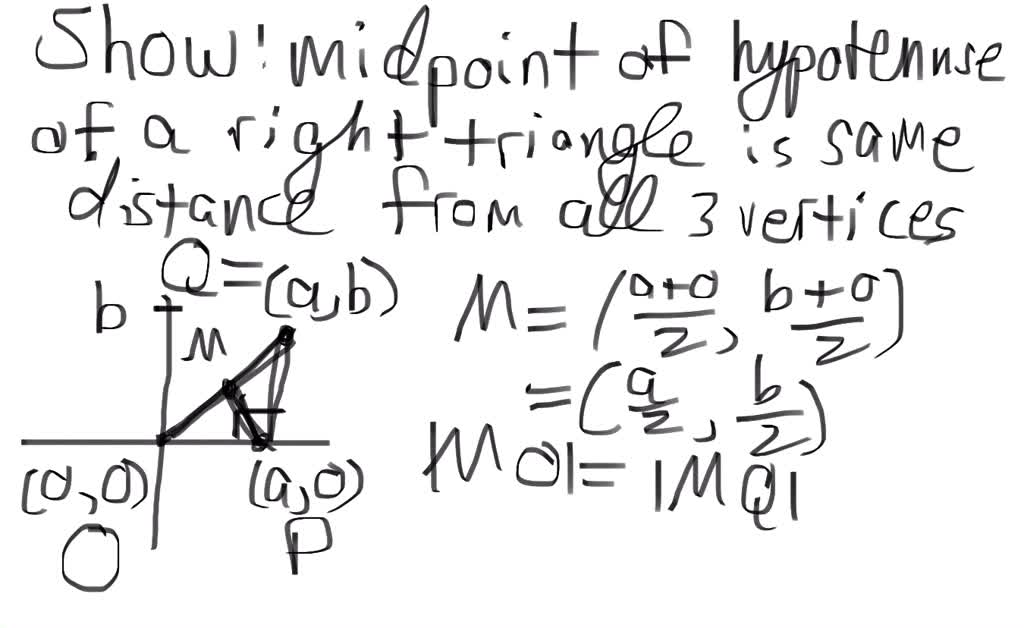 Show! midpoint of hypotenuse
of a right triangle is same
distance from all 3 vertices
Q=(a,b)
b
M
(0,0)
(a,0)
O
P
M=(a+0/2, b+0/2)
=(a/2, b/2)
|MO|=|MQ|